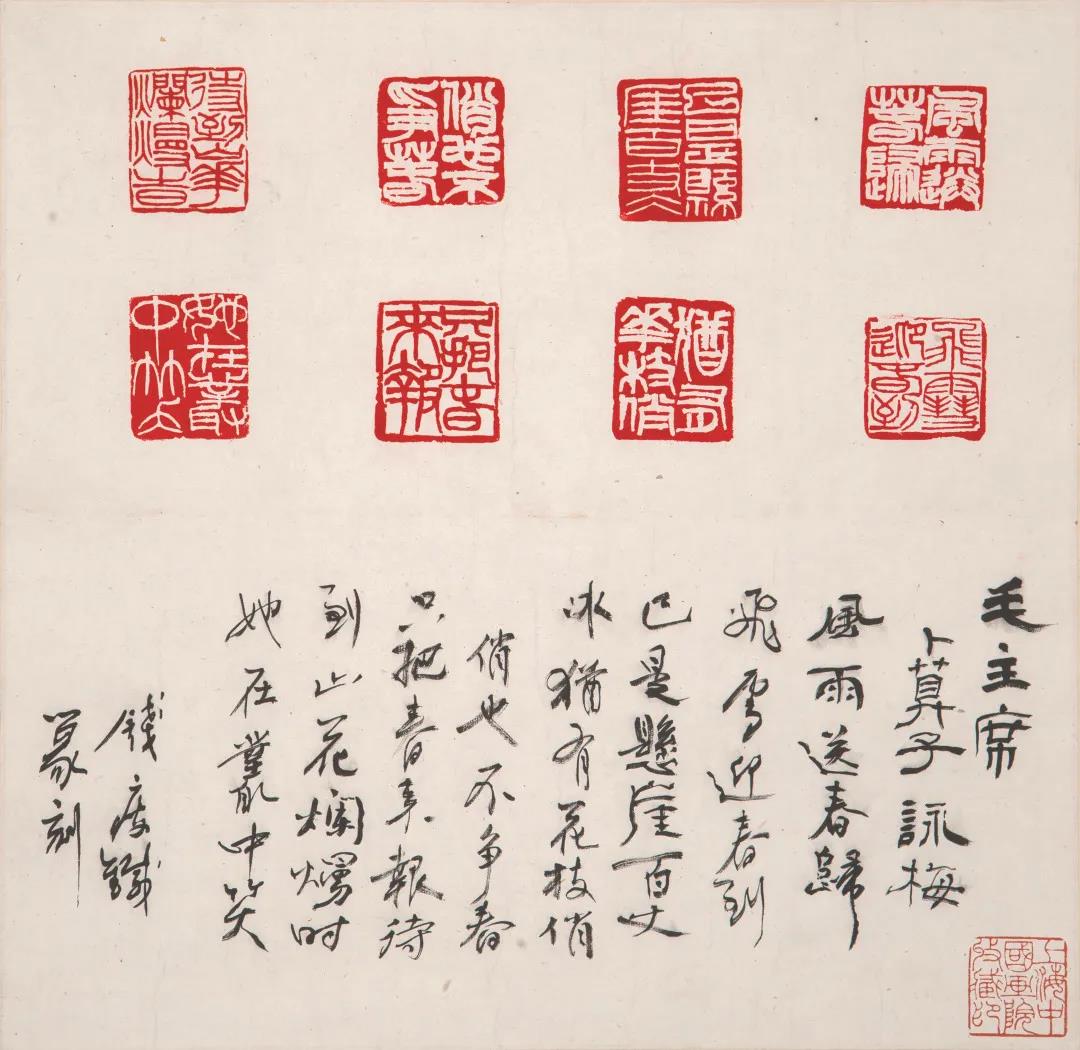 風雨送春歸
飛雪迎春到
已是縣厓百丈仌
猶有花枝俏
俏也不爭春
只把春來報
待到山花爛漫時
她在叢中笑
毛主席
卜算子 詠梅
風雨送春歸
飛雪迎春到
已是懸崖百丈
冰猶有花枝俏
俏也不争春
只把春来報待
到山花爛熳时
她在叢中笑
錢瘦鐵
篆刻
上海中
國画院
收藏印